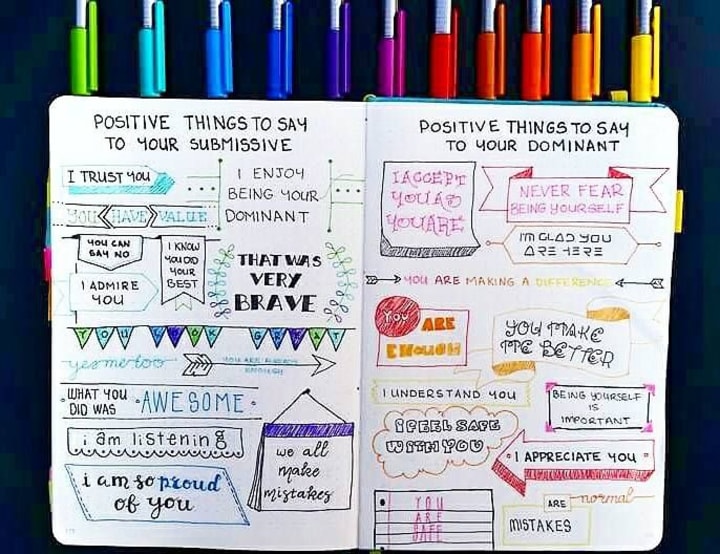 POSITIVE THINGS TO SAY
TO YOUR SUBMISSIVE
I TRUST YOU
I ENJOY
BEING YOUR
DOMINANT
YOU HAVE VALUE
YOU CAN
SAY NO
I KNOW
YOU DID
YOUR
BEST
THAT WAS
VERY
BRAVE
I ADMIRE
YOU
YOU LOOK GREAT
yes me too
YOU ARE ALREADY
ENOUGH
WHAT YOU
DID WAS
AWESOME
i am listening
we all
make
mistakes
i am so proud
of you
POSITIVE THINGS TO SAY
TO YOUR DOMINANT
I ACCEPT
YOU AS
YOU ARE
NEVER FEAR
BEING YOURSELF
I'M GLAD YOU
ARE HERE
YOU ARE MAKING A DIFFERENCE
YOU ARE
ENOUGH
YOU MAKE
ME BETTER
I UNDERSTAND YOU
BEING YOURSELF
IS
IMPORTANT
I FEEL SAFE
WITH YOU
I APPRECIATE YOU
YOU
ARE
SAFE
MISTAKES
ARE
normal